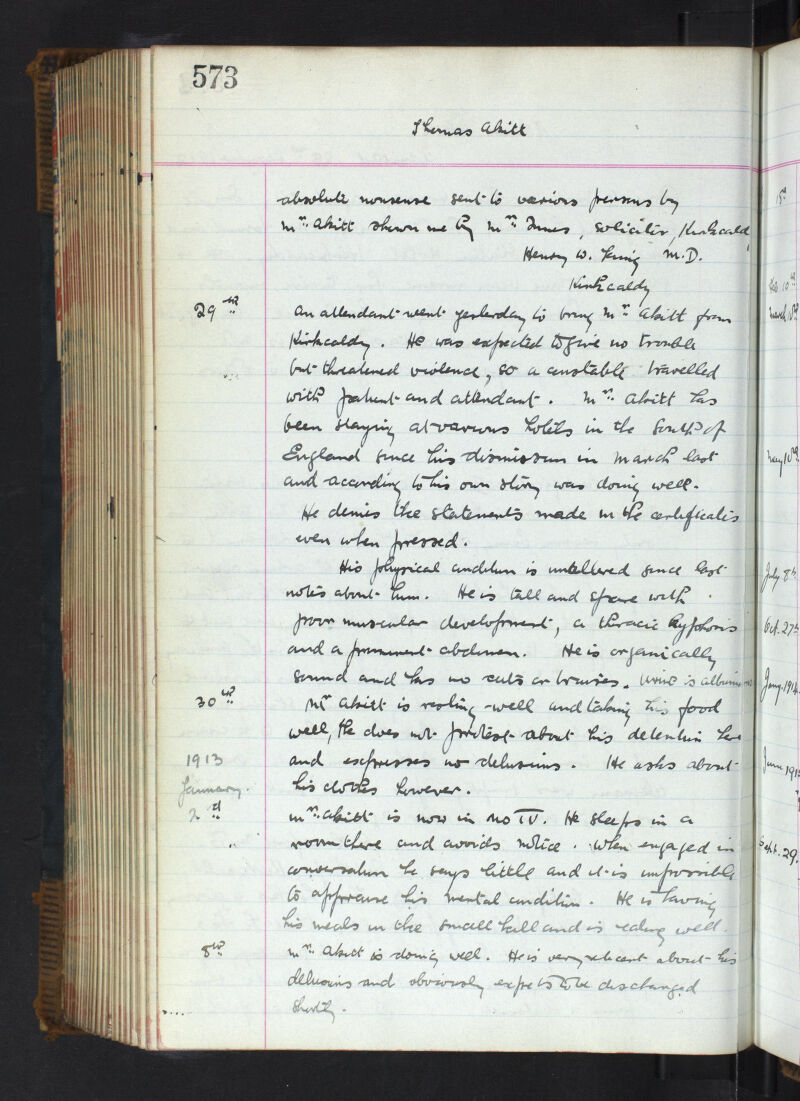 573
Thomas Akitt
absolute nonsense sent to various persons by
Mr. Akitt shewn me by Mr. Innes, Solicitor, Kirkcaldy
Henry W. King M.D.
Kirkcaldy
29th An attendant went yesterday to bring Mr. Akitt from
Kirkcaldy. He was expected to give no trouble
but threatened violence, so a constable travelled
with patient and attendant. Mr. Akitt has
been staying at various hotels in the South of
England since his dismission in March last
and according to his own story was doing well.
He denies the statements made in the certificates
even when pressed.
His physical condition is unaltered since last
notes about him. He is tall and spare with
poor muscular development, a thoracic kyphosis
and a prominent abdomen. He is organically
sound and has no cuts or bruises. Urine is
30th Mr Akitt is resting well and taking his food
well, He does not protest about his detention here
1913 and expresses no delusions. He asks about
January. his clothes however.
2d Mr. Akitt is now in No IV. He sleeps in a
room there and avoids notice. When engaged in
conversation he says little and it is impossible
to appraise his mental condition. He is having
his meals in the small hall and is eating well.
8th Mr. Akitt is doing well. He is very reticent about his
delusions and obviously expects to be discharged
shortly.
March 10th
May 10th
July 8th
Oct. 27th
Jany. 1914
June 191
Sept. 29.